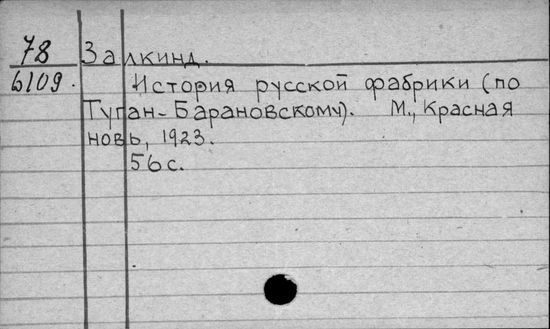 78 Залкинд.
6109. История русской фабрики (по
Туган-Барановскому). М., Красная
новь, 1923.
56 с.